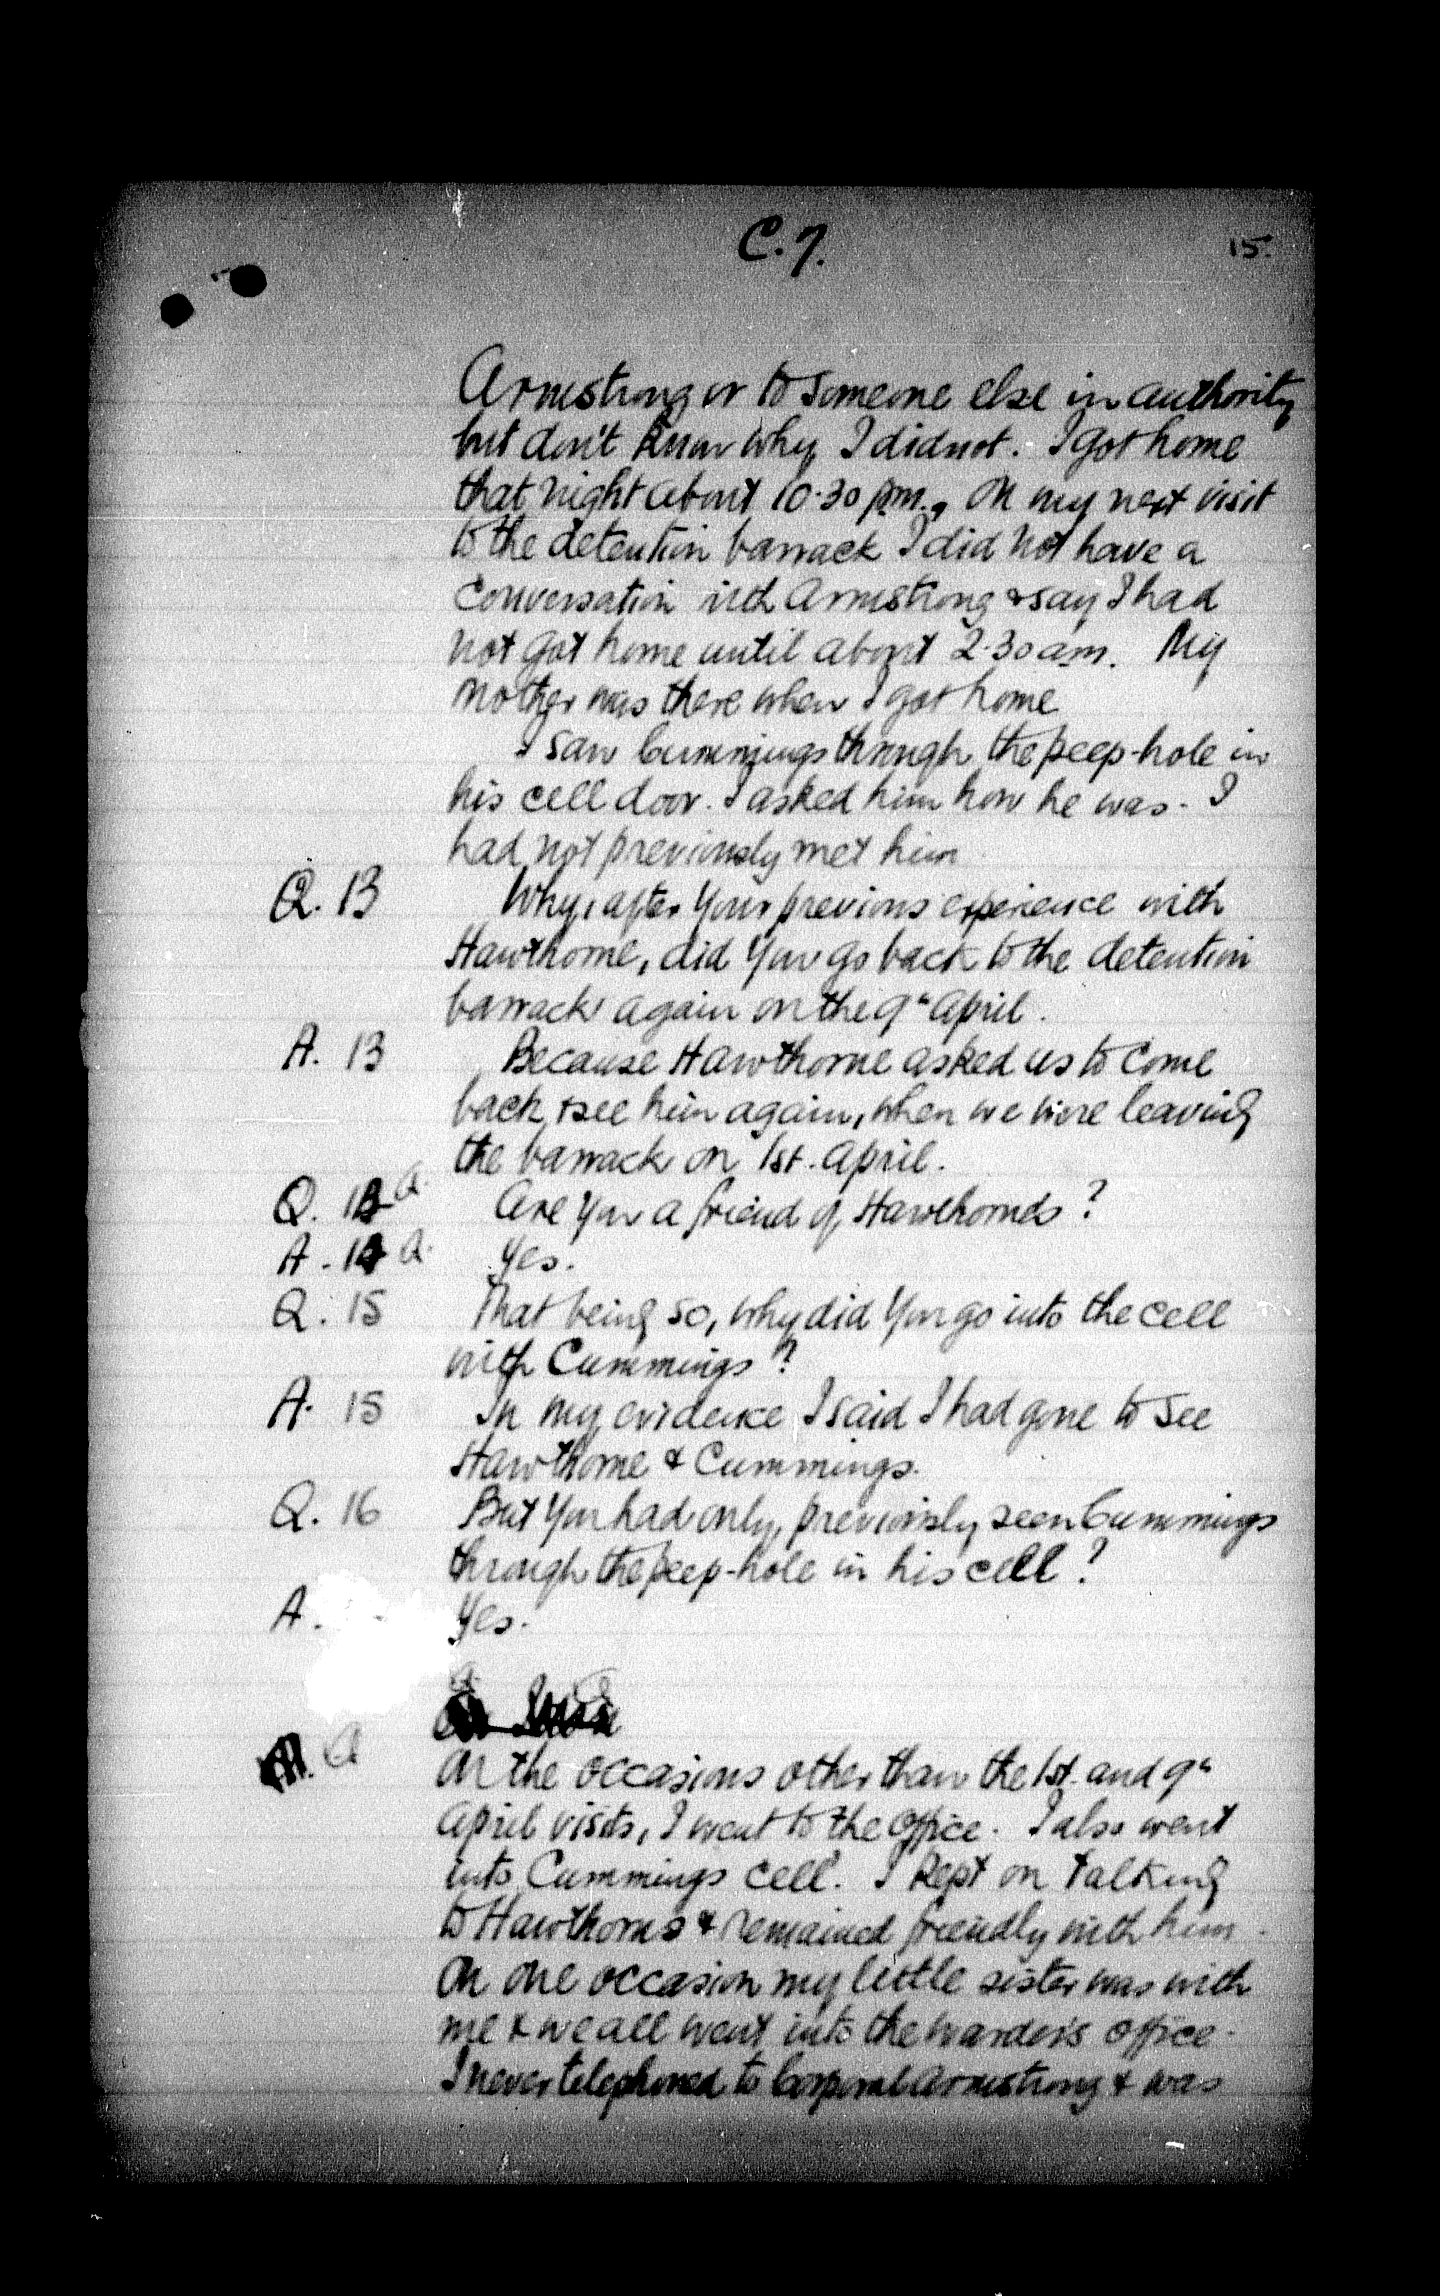 C.7.
15.
Armstrong or to someone else in authority
but don't know why I did not. I got home
that night about 10.30 pm., On my next visit
to the detention barrack I did not have a
conversation with Armstrong & say I had
not got home until about 2.30 am. My
mother was there when I got home
I saw Cummings through the peep-hole in
his cell door. I asked him how he was. I
had not previously met him
Q. 13 Why, after your previous experience with
Hawthorne, did you go back to the detention
barrack again on the 9th April.
A. 13 Because Hawthorne asked us to come
back & see him again, when we were leaving
the barrack on 1st. April.
Q. a. Are you a friend of Hawthornes?
A. 14 a. Yes.
Q. 15 That being so, why did you go into the cell
with Cummings?
A. 15 In my evidence I said I had gone to see
Hawthorne & Cummings.
Q. 16 But you had only previously seen Cummings
through the peep-hole in his cell?
A. Yes.
a
On the occasions other than the 1st. and 9th
April visits, I went to the office. I also went
into Cummings cell. I kept on talking
to Hawthorne & remained friendly with him.
On one occasion my little sister was with
me & we all went into the warder's office.
I never telephoned to Corporal Armstrong & was